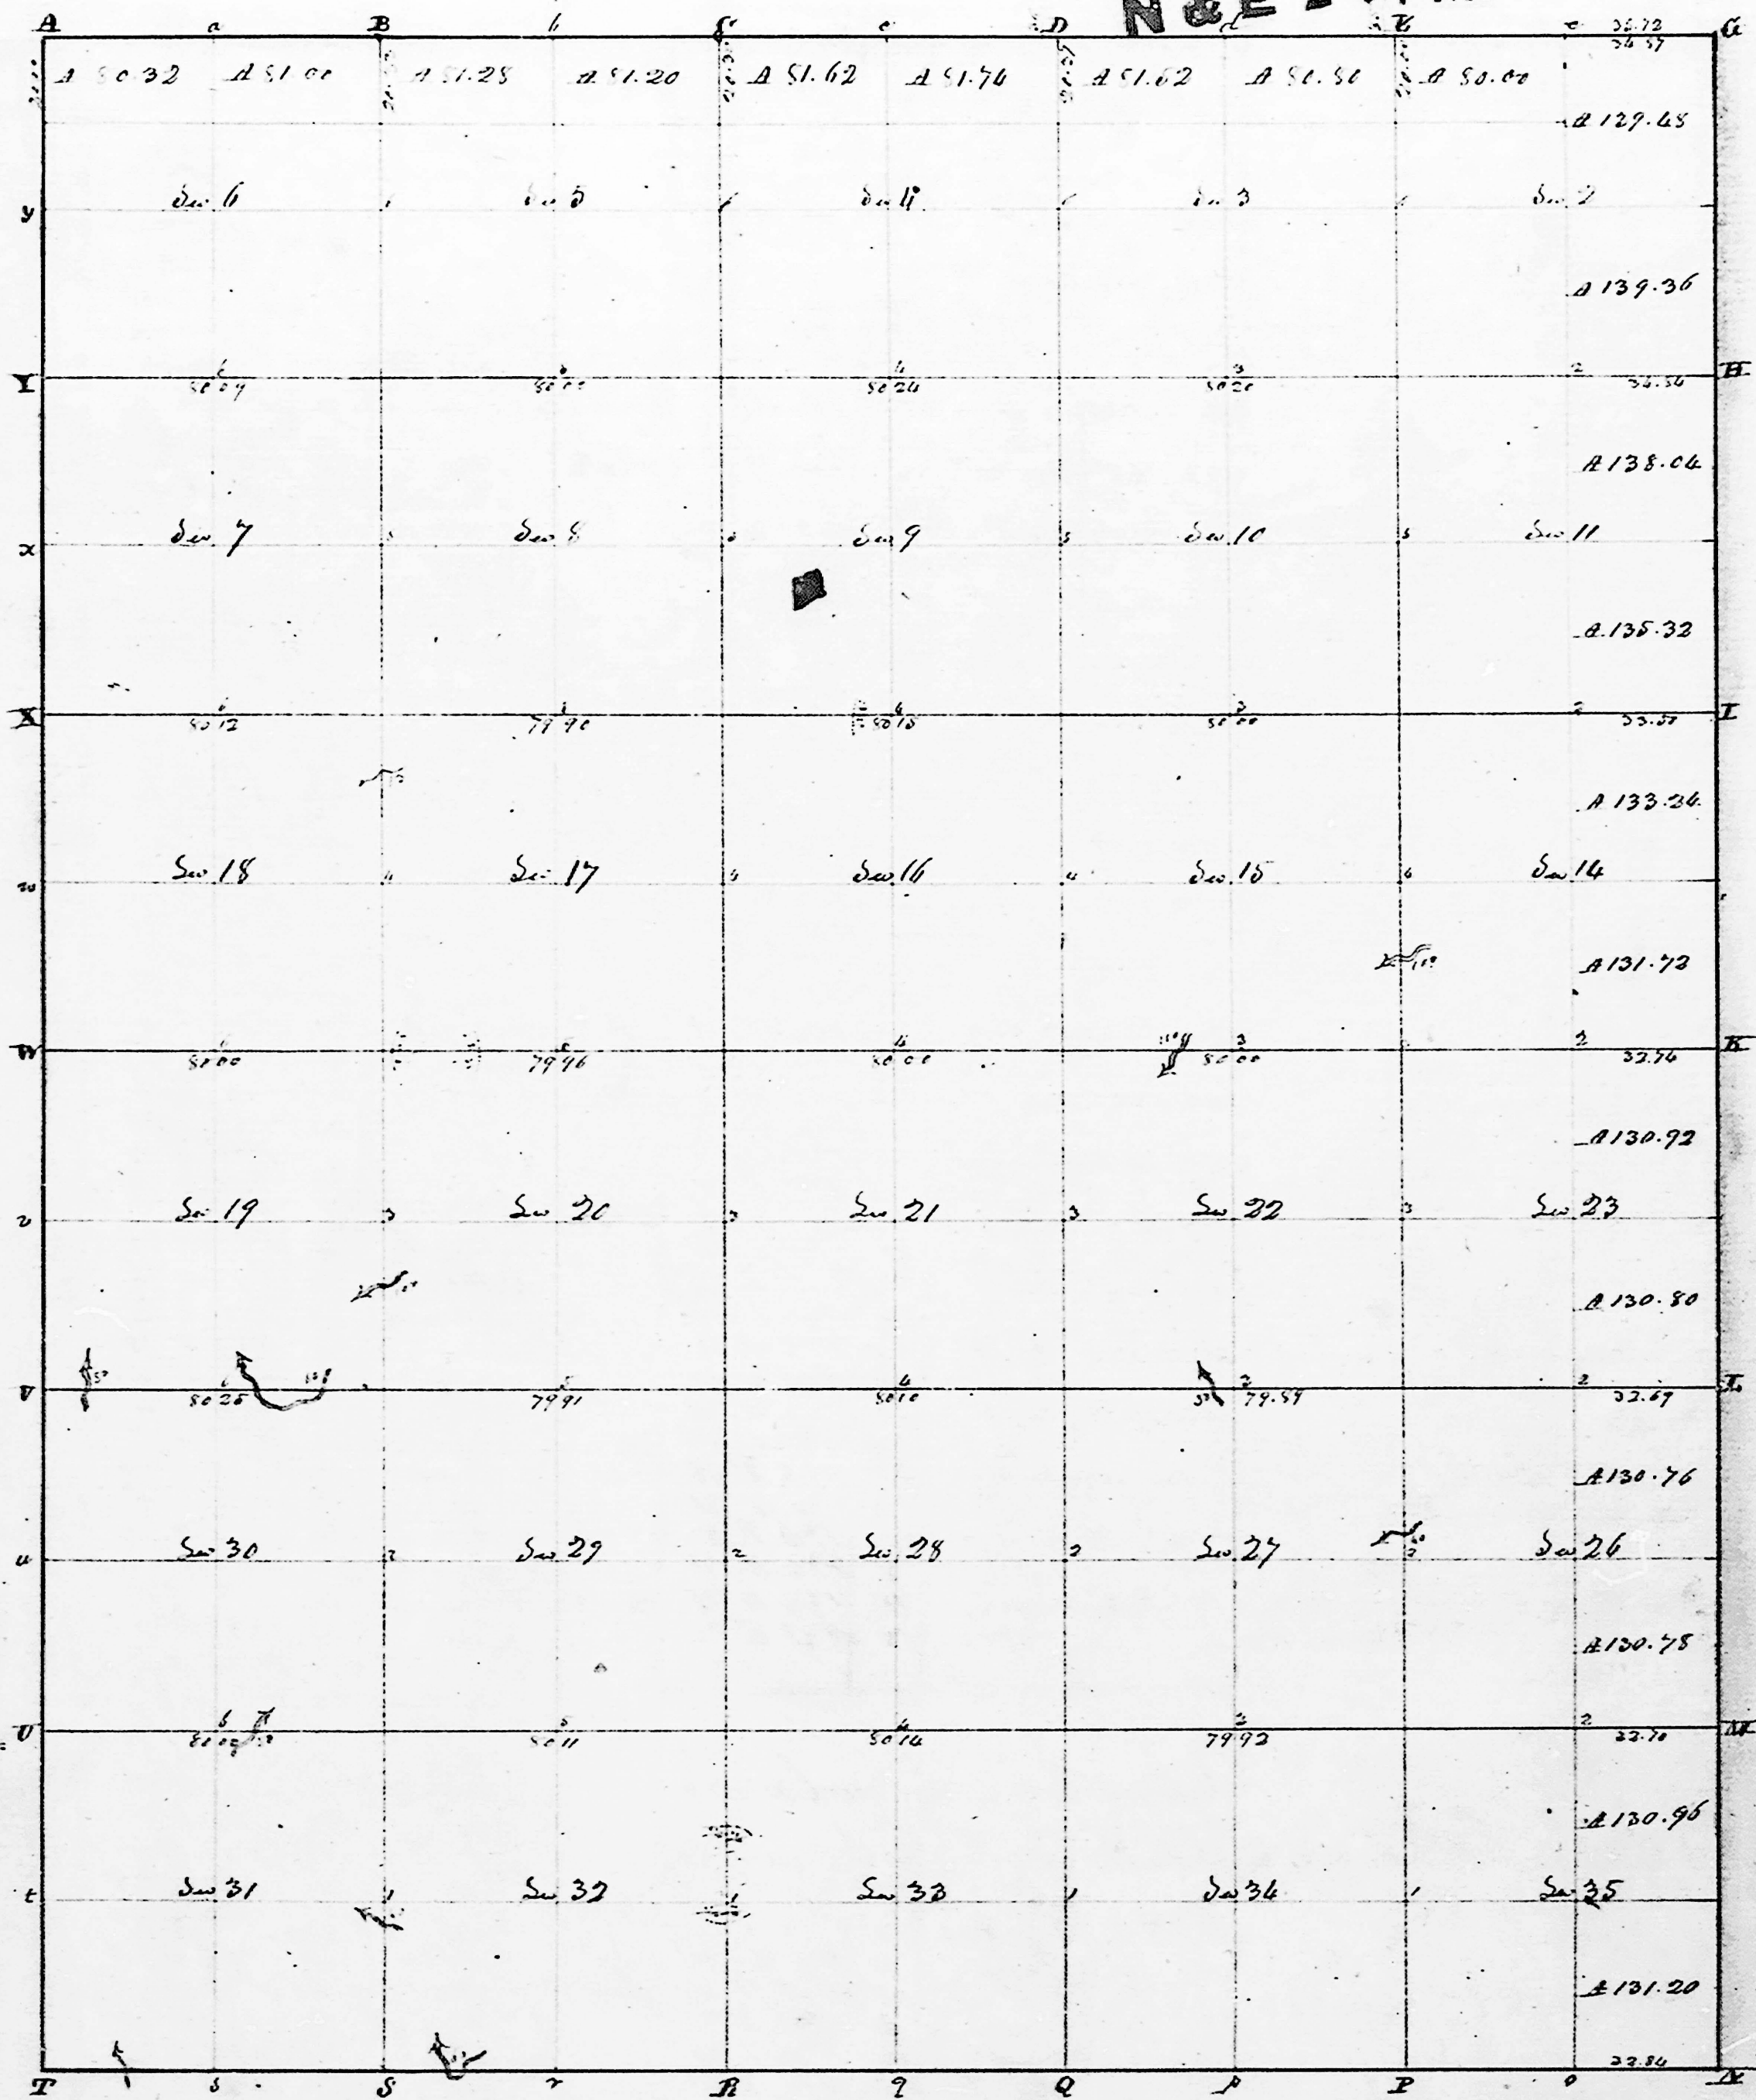 N & E
A a B b C c D d E e G
36.72
A 80.32 A 81.00 A 81.28 A 81.20 A 81.62 A 81.74 A 81.62 A 80.80 A 80.00
A 129.48
y Sec 6 Sec 5 Sec 4 Sec 3 Sec 2
A 139.36
Y 6 4 3 2 H
80.24 80.20
A 138.04
x Sec 7 Sec 8 Sec 9 Sec 10 5 Sec 11
A 135.32
X 4 3 2 I
80.12 79.90 80.15 80.00
A 133.24
w Sec 18 4 Sec 17 4 Sec 16 4 Sec 15 4 Sec 14
A 131.72
W 4 3 2 K
80.00 79.96 80.00 80.00 32.74
A 130.92
v Sec 19 3 Sec 20 3 Sec 21 3 Sec 22 3 Sec 23
A 130.80
V 4 3 2 L
80.25 79.91 80.10 79.89 32.69
A 130.76
u Sec 30 2 Sec 29 2 Sec 28 2 Sec 27 2 Sec 26
A 130.78
U 6 5 4 3 2 M
80.11 80.14 79.92 32.70
A 130.96
t Sec 31 1 Sec 32 1 Sec 33 1 Sec 34 1 Sec 35
A 131.20
32.84
T s S r R q Q p P o N